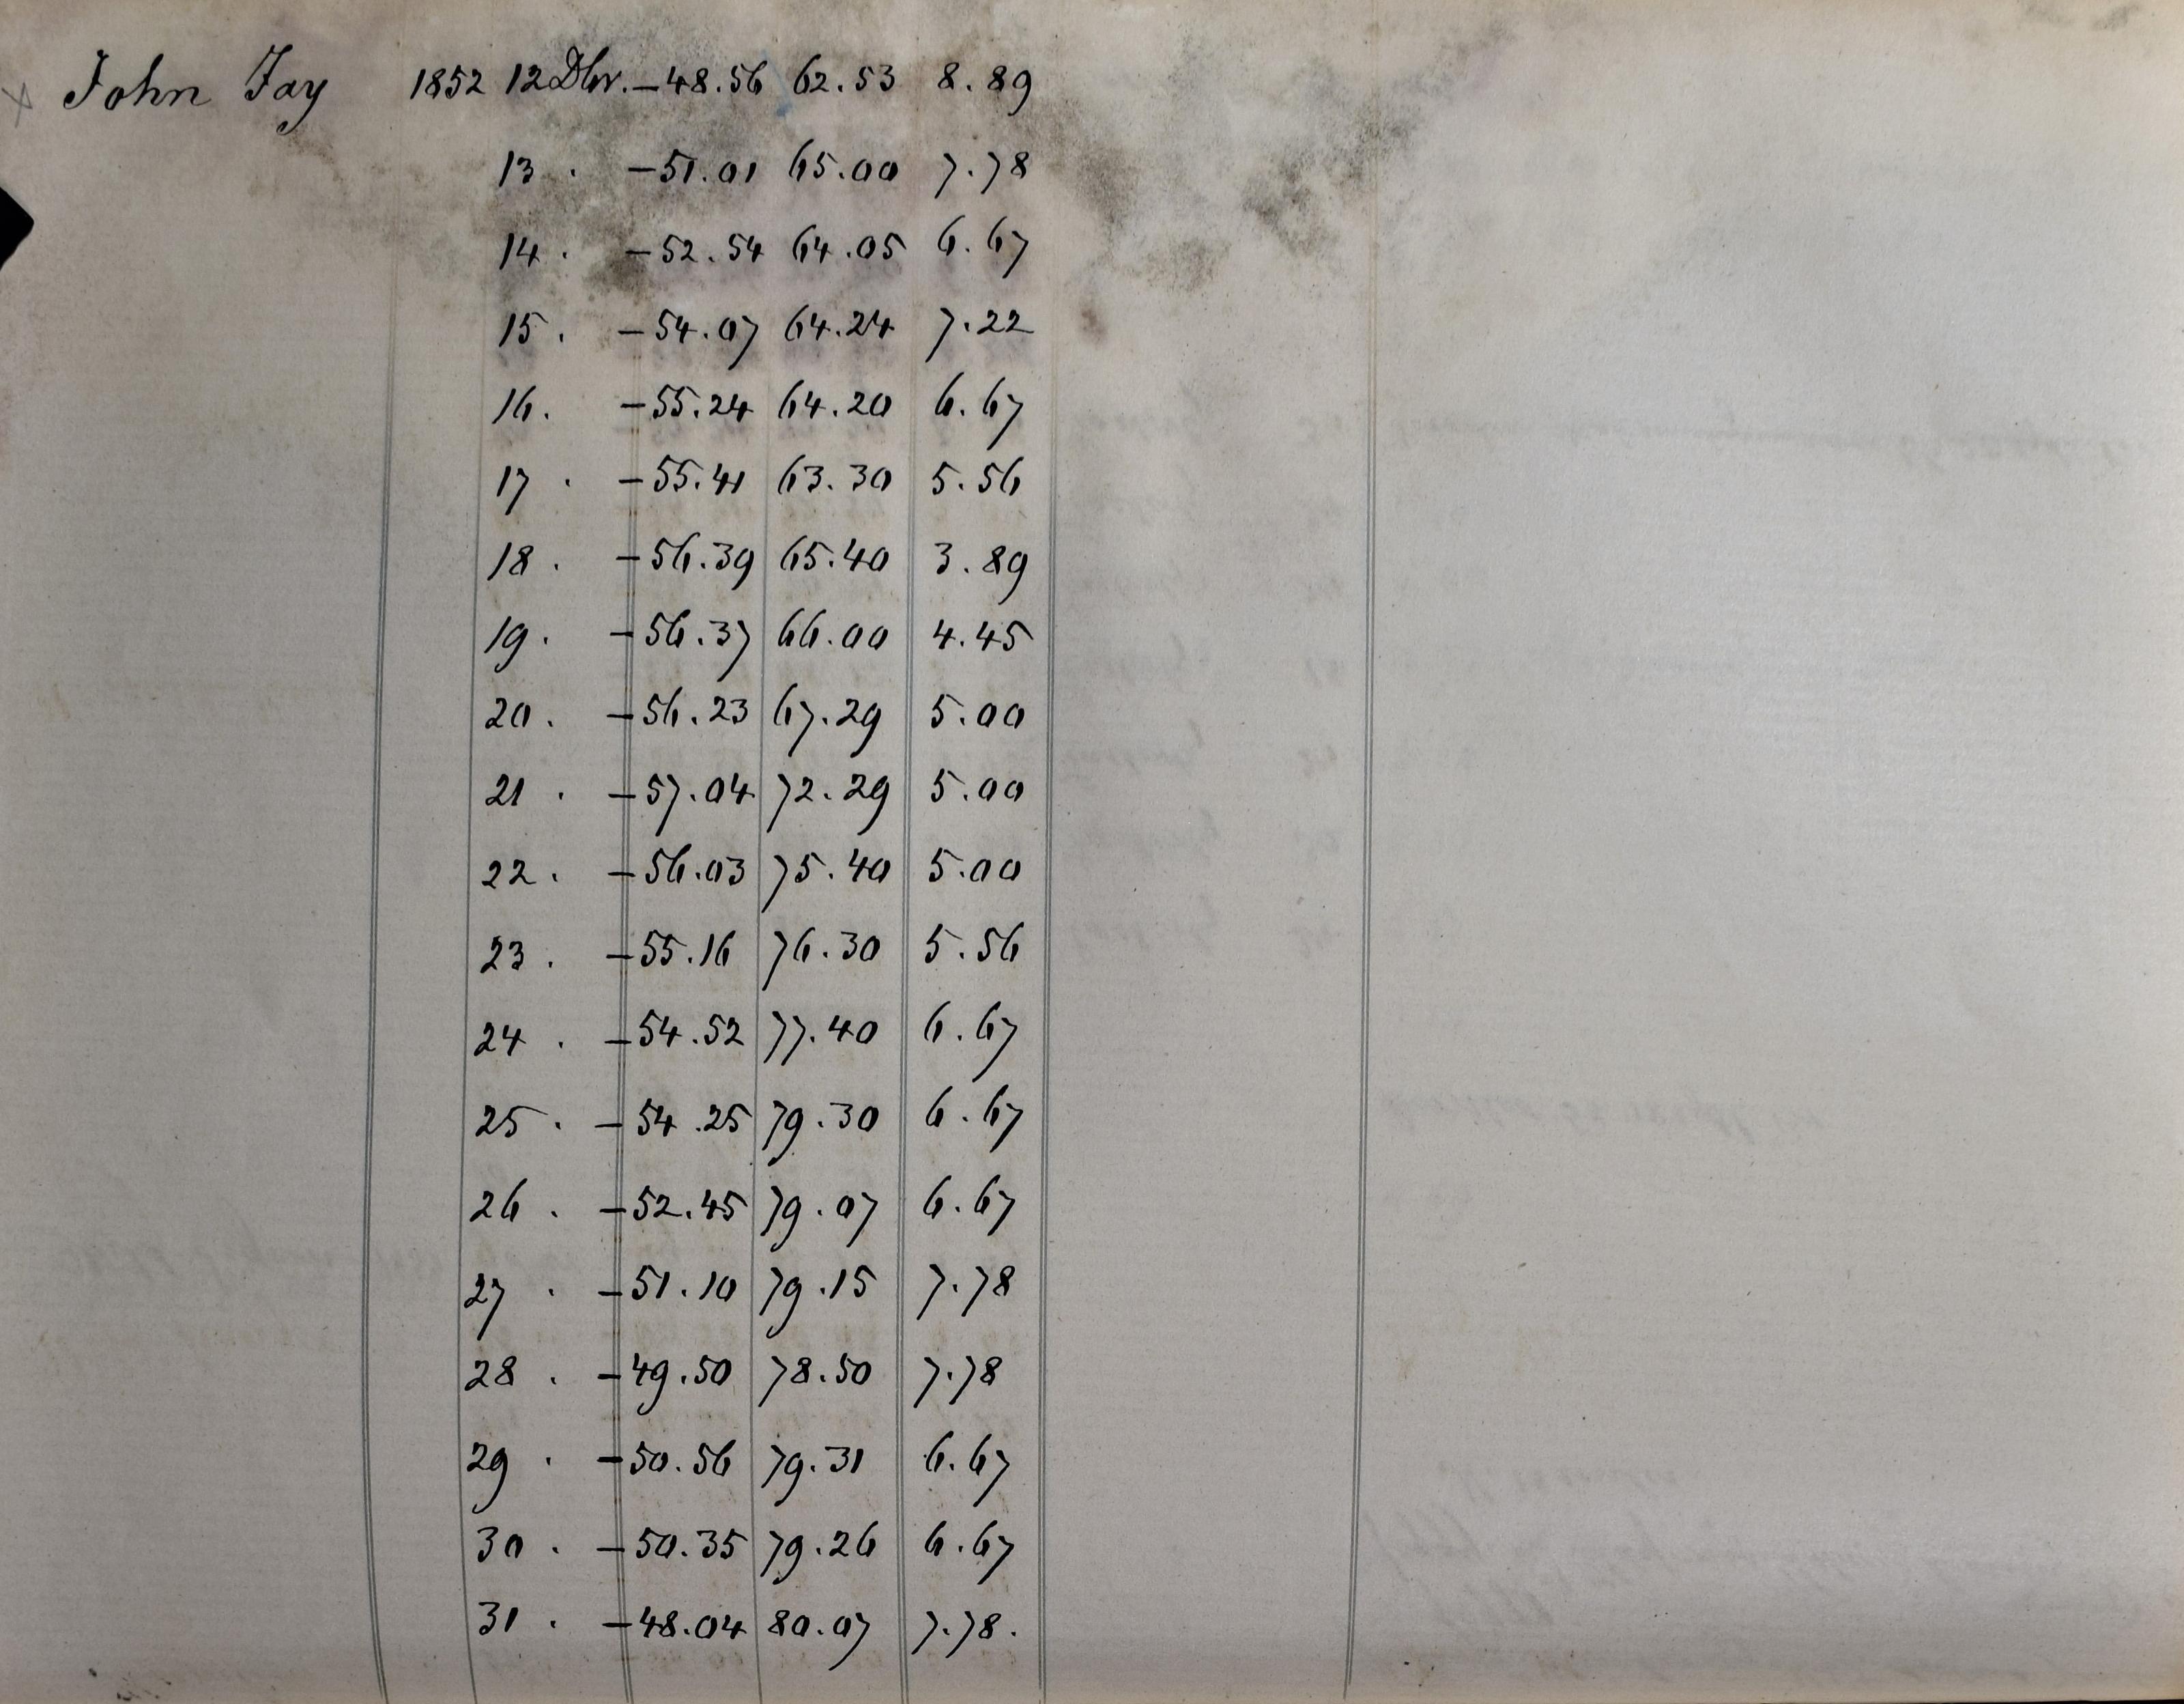 John Jay 1852 12 Dbr. -48.56 62.53 8.89
13 . -51.01 65.00 7.78
14 . -52.54 64.05 6.67
15 . -54.07 64.24 7.22
16 . -55.24 64.20 6.67
17 . -55.41 63.30 5.56
18 . -56.39 65.40 3.89
19 . -56.37 66.00 4.45
20 . -56.23 67.29 5.00
21 . -57.04 72.29 5.00
22 . -56.03 75.40 5.00
23 . -55.16 76.30 5.56
24 . -54.52 77.40 6.67
25 . -54.25 79.30 6.67
26 . -52.45 79.07 6.67
27 . -51.10 79.15 7.78
28 . -49.50 78.50 7.78
29 . -50.56 79.31 6.67
30 . -50.35 79.26 6.67
31 . -48.04 80.07 7.78.